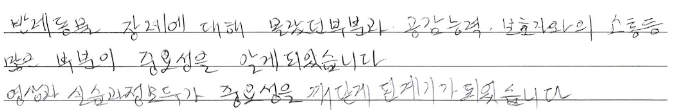 반려동물 장례에 대해 몰랐던부분과. 공감능력. 보호자와의 소통등
많은 부분의 중요성을 알게되었습니다
영상과 실습과정모두가 중요성을 깨닫게 된계기가되었습니다